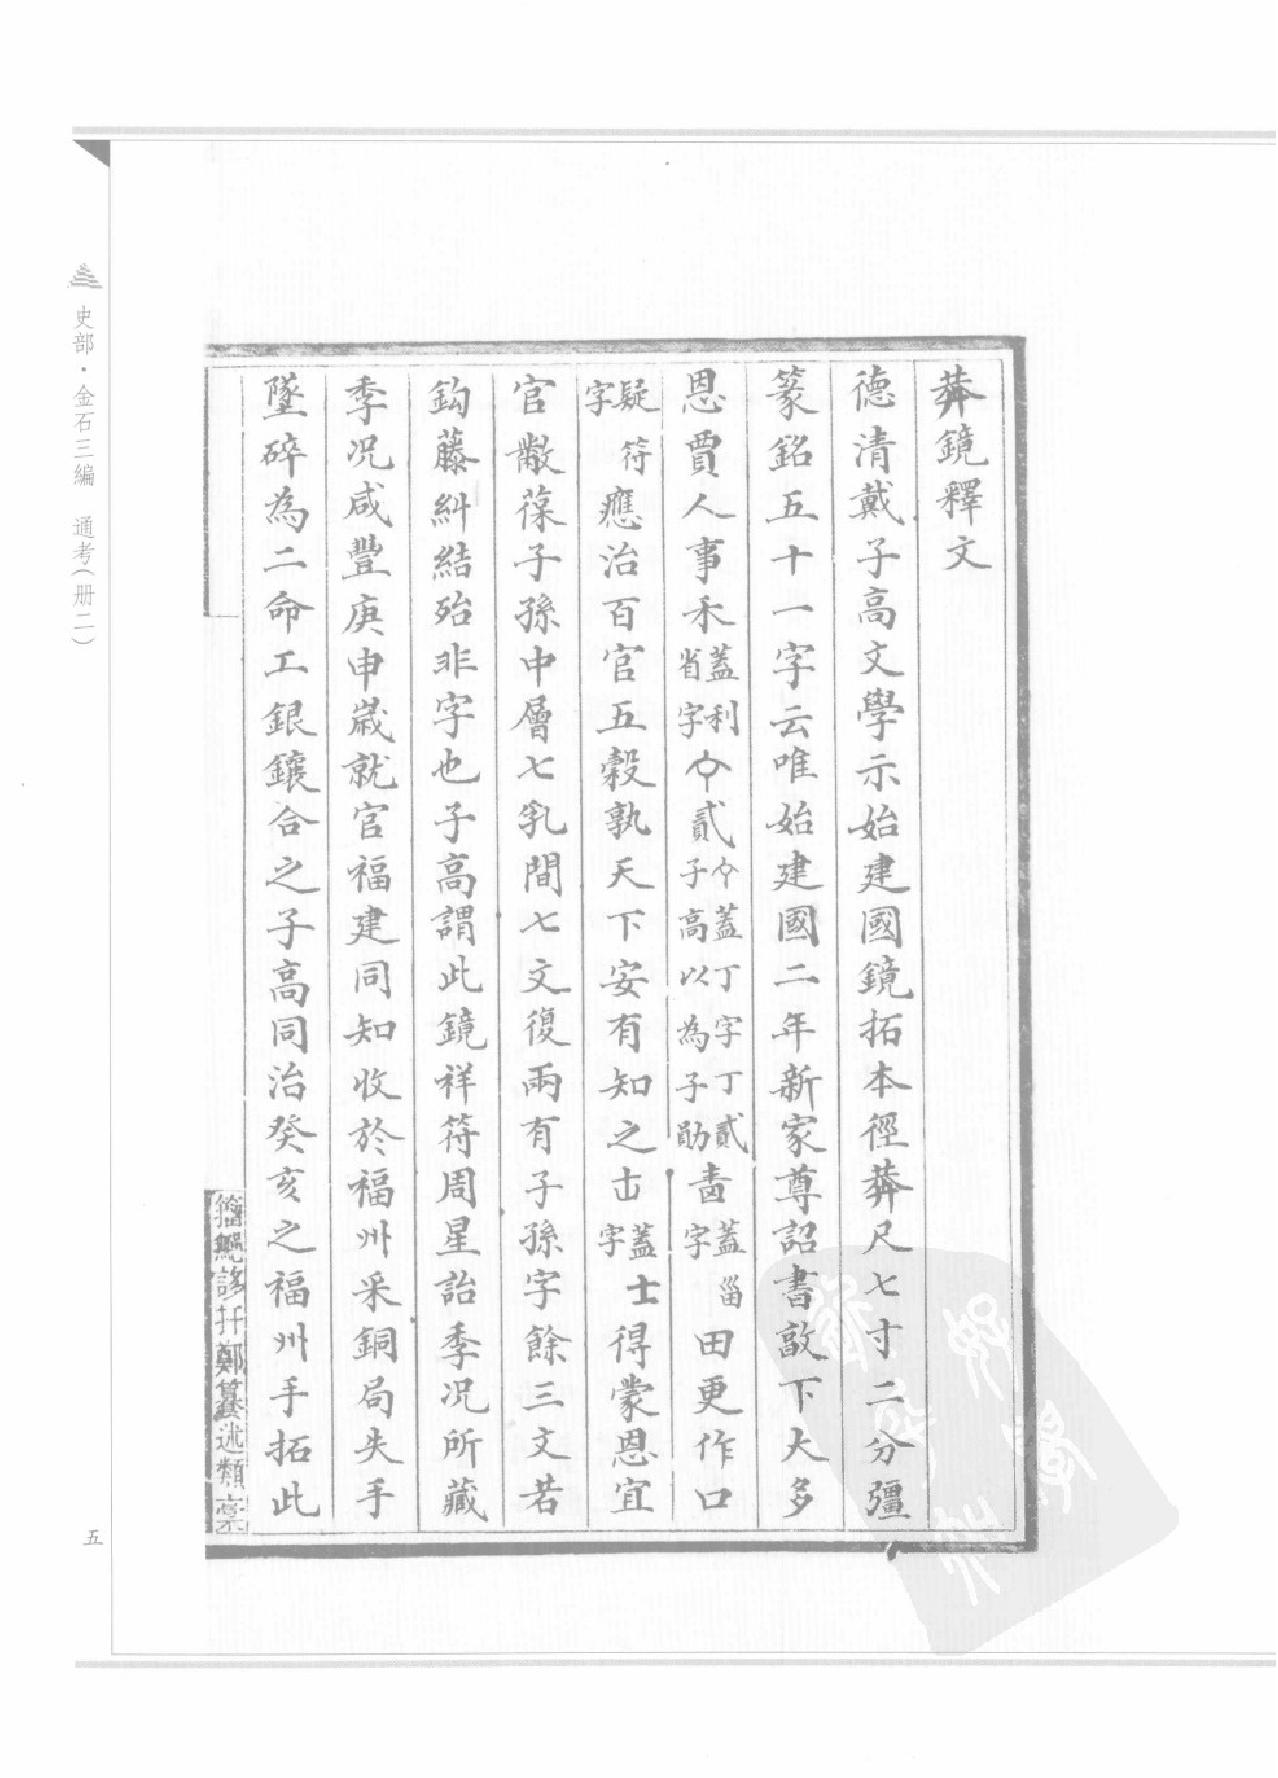 莽鏡釋文
德清戴子高文學示始建國鏡拓本徑莽尺七寸二分彊
篆銘五十一字云唯始建國二年新家尊詔書敨下大多
恩賈人事禾蓋利省字貳蓋丁字丁貳子高以為子勛嗇蓋甾字田更作口
疑符字應治百官五穀孰天下安有知之士蓋士字得蒙恩宜
官敝葆子孫中層七乳間七文復兩有子孫字餘三文若
鈎藤糾結殆非字也子高謂此鏡祥符周星詒季況所藏
季況咸豐庚申歲就官福建同知收於福州采銅局失手
墜碎為二命工銀鑲合之子高同治癸亥之福州手拓此
述類稾
史部·金石三編 通考(册二)
五